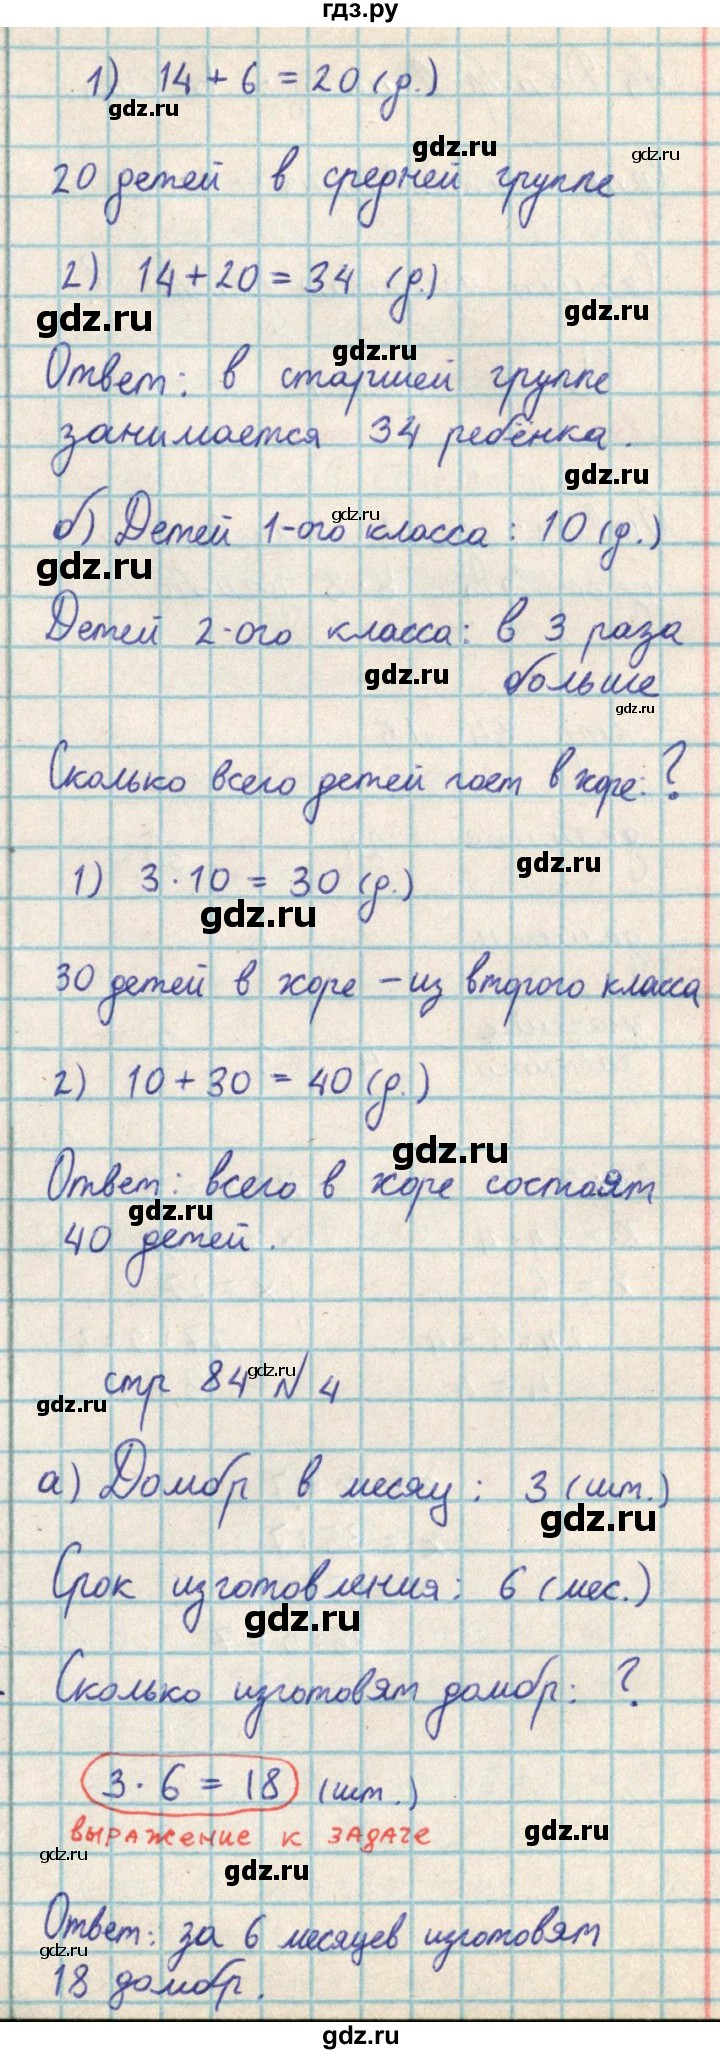 гдз.ру
1) 14 + 6 = 20 (д.)
gdz.ru
gdz.ru
gdz.ru
20 детей в средней группе
2) 14 + 20 = 34 (д.)
gdz.ru
gdz.ru
gdz.ru
Ответ: в старшей группе
занимается 34 ребёнка.
gdz.ru
gdz.ru
б) Детей 1-ого класса: 10 (д.)
gdz.ru
Детей 2-ого класса: в 3 раза
gdz.ru
больше
gdz.ru
Сколько всего детей поет в хоре: ?
gdz.ru
1) 3 · 10 = 30 (д.)
gdz.ru
30 детей в хоре - из второго класса
2) 10 + 30 = 40 (д.)
gdz.ru
Ответ: всего в хоре состоят
gdz.ru
40 детей.
gdz.ru
стр 84 № 4
gdz.ru
а) Домбр в месяц: 3 (шт.)
gdz.ru
Срок изготовления: 6 (мес.)
gdz.ru
Сколько изготовят домбр: ?
3 · 6 = 18 (шт.)
выражение к задаче
gdz.ru
gdz.ru
gdz.ru
Ответ: за 6 месяцев изготовят
gdz.ru
18 домбр.
gdz.ru
gdz.ru